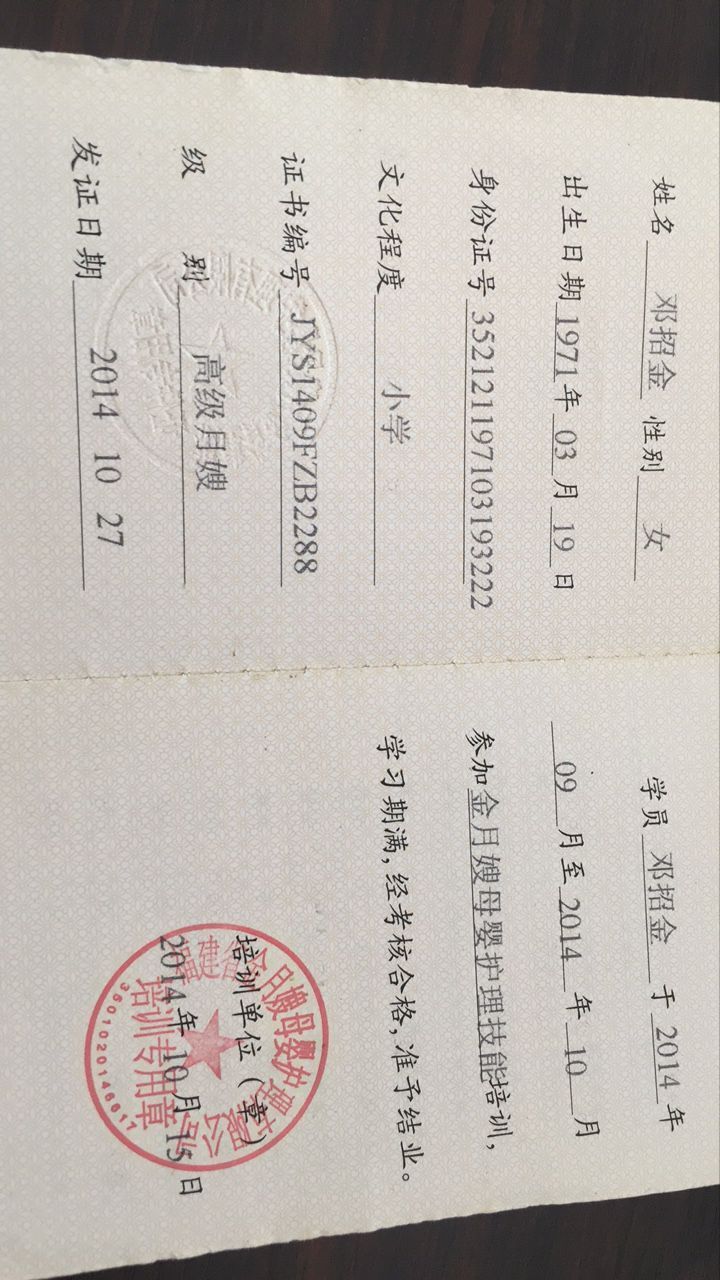 姓名 邓招金 性别 女
出生日期 1971 年 03 月 19 日
身份证号 352121197103193222
文化程度 小学
证书编号 JYS1409FZB2288
级 别 高级月嫂
发证日期 2014 10 27
学员 邓招金 于 2014 年
09 月至 2014 年 10 月
参加 金月嫂母婴护理技能 培训,
学习期满,经考核合格,准予结业。
培训单位(章)
2014年 10月 15日
培训专用章